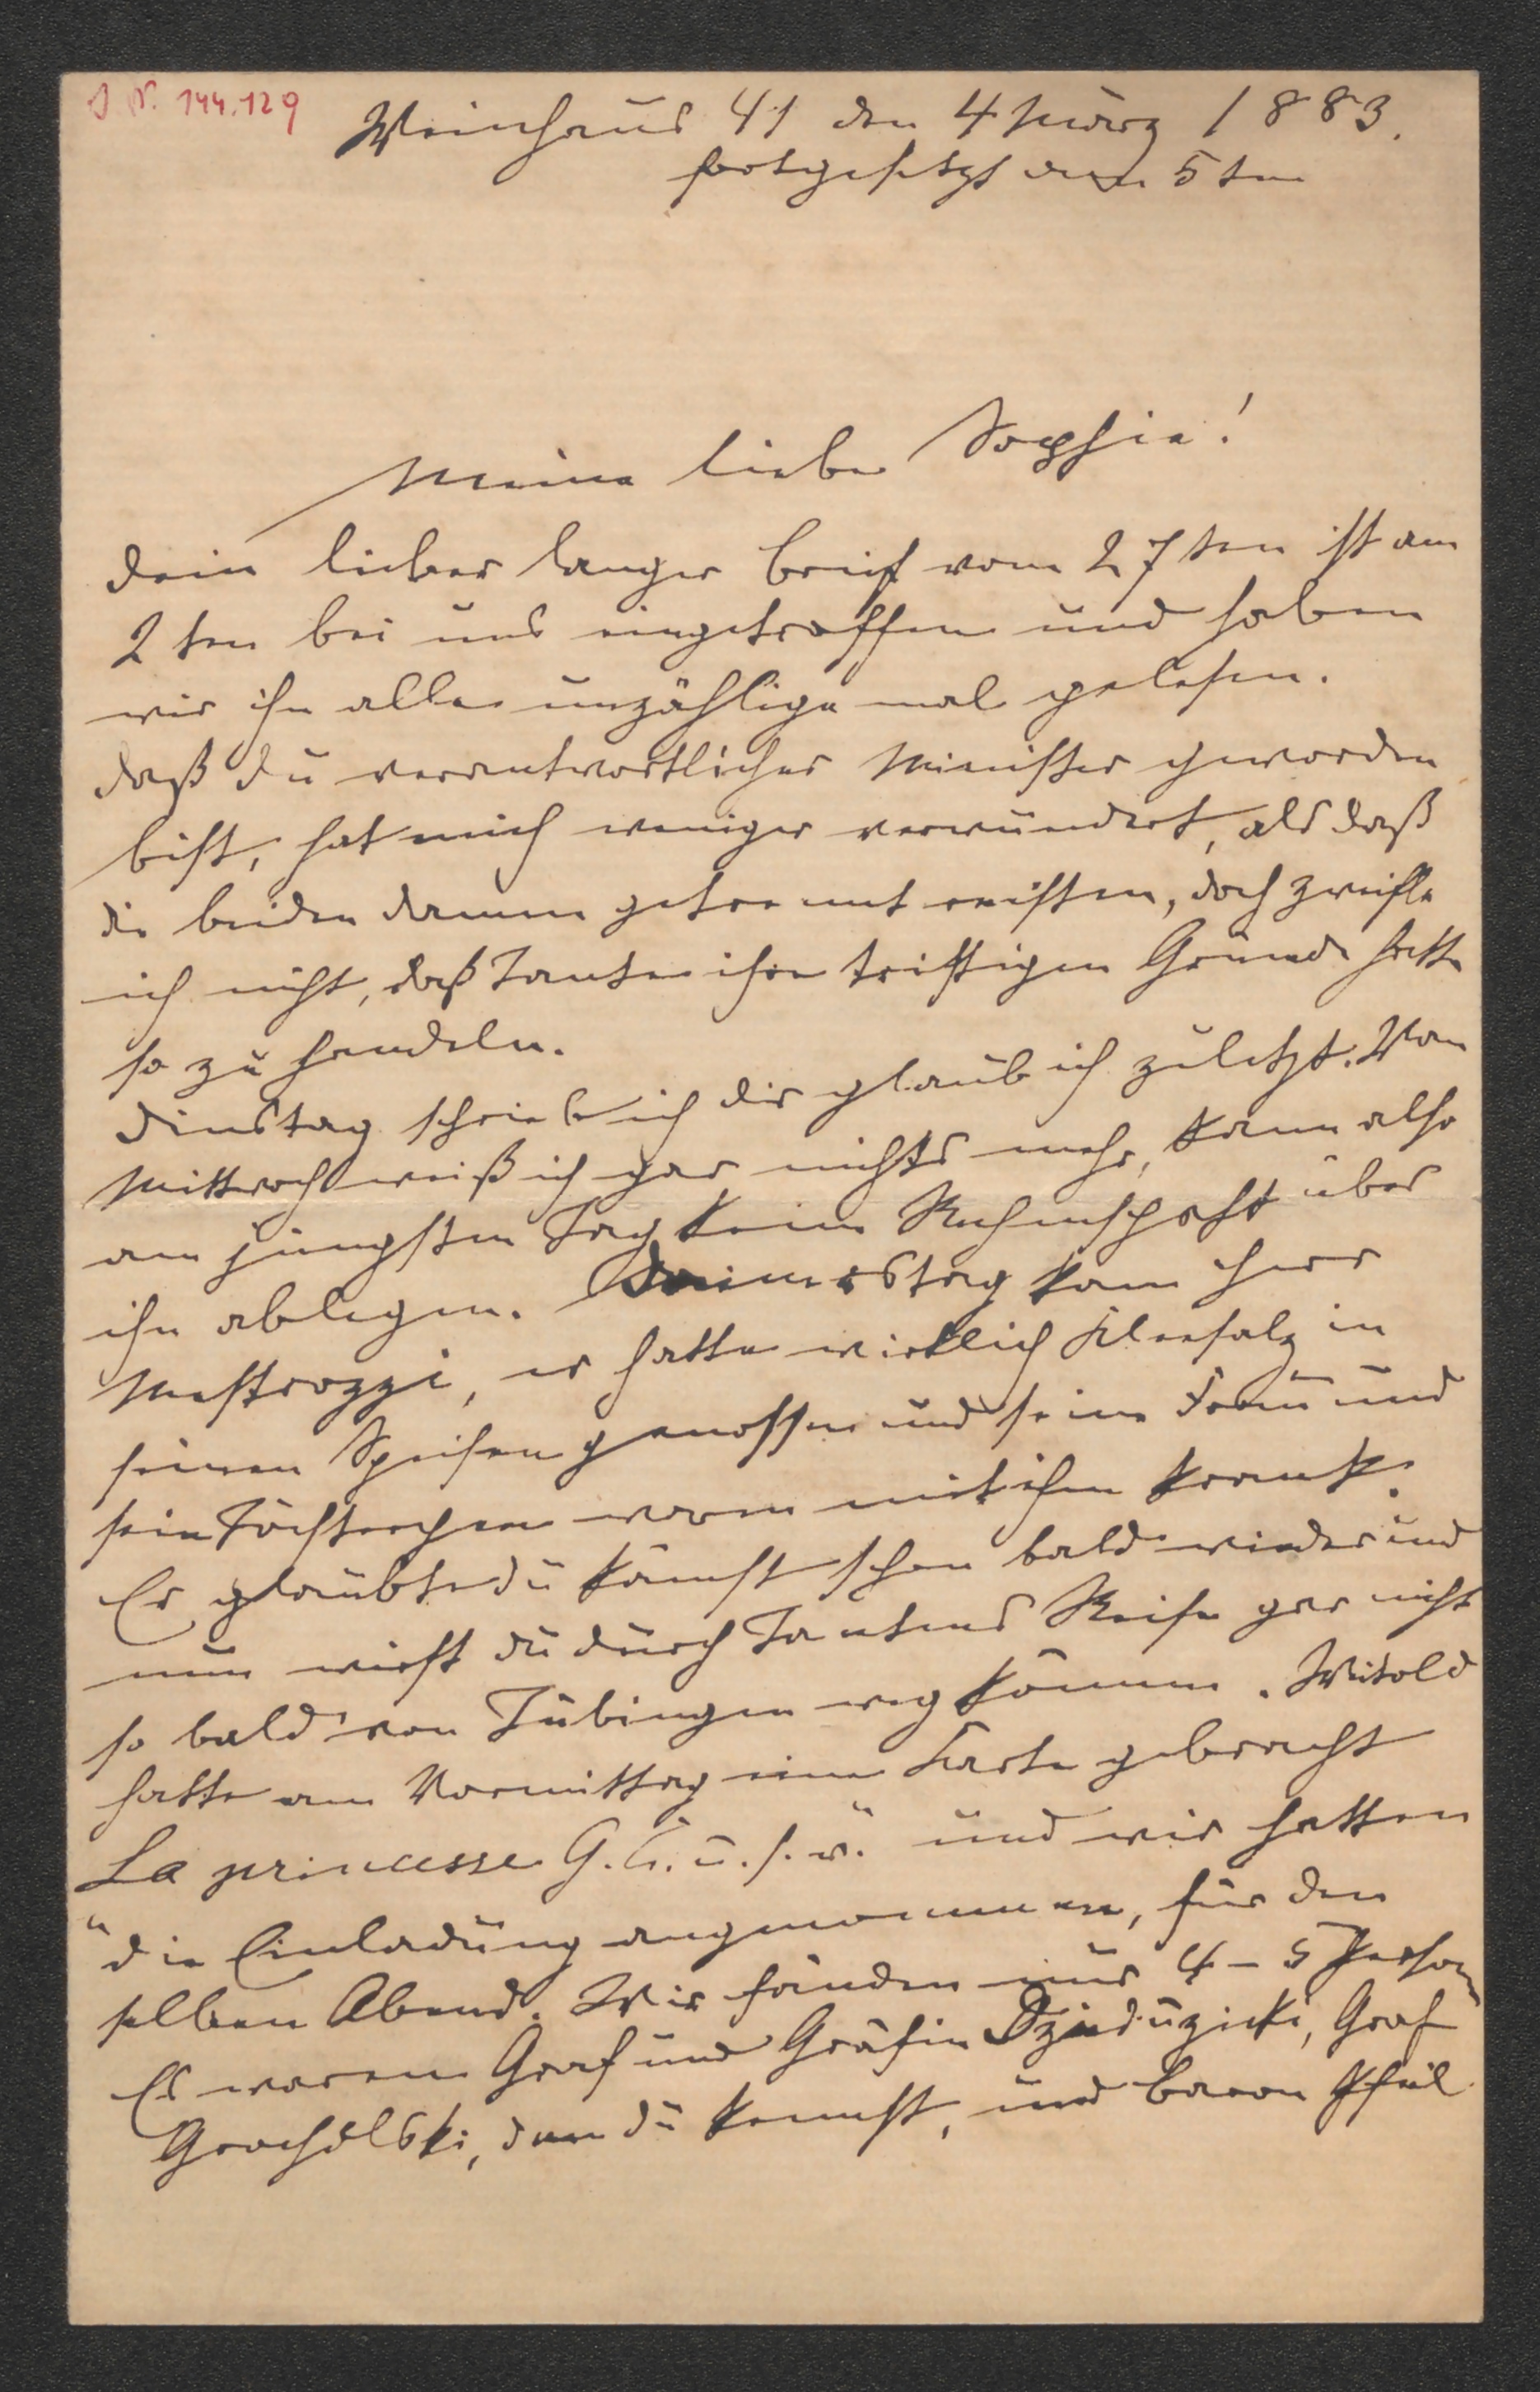 I. N. 144.129
Weinhaus 41 den 4 März 1883.
fortgesetzt den 5ten
Meine liebe Sophie!
Dein lieber langer Brief vom 27ten ist am
2ten bei uns eingetroffen und haben
wir ihn alle unzählige mal gelesen.
Daß du verantwortlicher Minister geworden
bist, hat mich weniger verwundert, als daß
die beiden Damen getrennt reisten, doch zweifle
ich nicht, daß Tante ihre triftigen Gründe hatte
so zu handeln.
Dinstag schrieb ich dir glaub ich zuletzt. Von
Mittwoch weiß ich gar nichts mehr, kann also
am jüngsten Tag keine Rechenschaft über
ihn ablegen. Donnerstag kam Herr
Mestrozzi, er hatte wirklich Kleesalz in
seinen Speisen genossen und seine Frau und
sein Töchterchen waren mit ihm krank.
Er glaubte du kämst schon bald wieder und
nun wirst du durch Tantens Reise gar nicht
so bald von Tübingen weg können. Witold
hatte am Vormittag eine Karte gebracht
La princesse G. C. u. s. w." und wir hatten
"die Einladung angenommen, für den
selben Abend. Wir fanden nur 4-5 Person
Es waren Graf und Gräfin Dzieduzicki, Graf
Grocholski, den du kennst, und Baron Pfeil